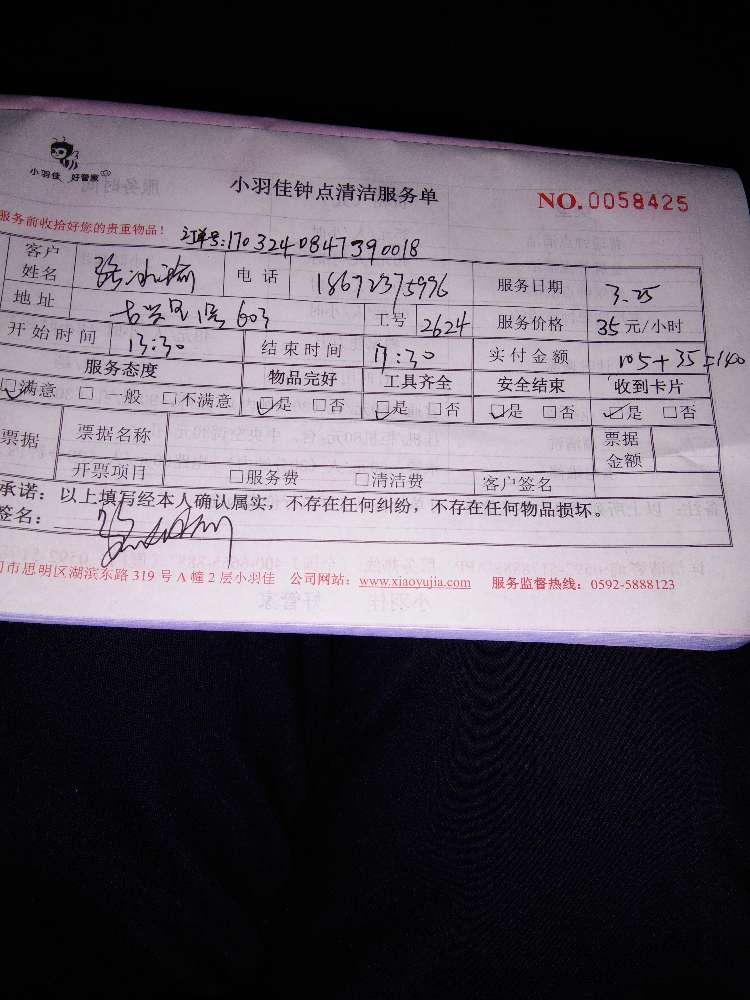 小羽佳 好管家
小羽佳钟点清洁服务单
NO.0058425
服务前收拾好您的贵重物品！ 订单号:1703240847390018
客户姓名 张冰瑜 电话 18672375996 服务日期 3.25
地址 603 工号 2624 服务价格 35元/小时
开始时间 13:30 结束时间 17:30 实付金额 105+35=140
服务态度 物品完好 工具齐全 安全结束 收到卡片
□满意 □一般 □不满意 □是 □否 □是 □否 □是 □否 □是 □否
票据 票据名称 票据金额
开票项目 □服务费 □清洁费 客户签名
承诺：以上填写经本人确认属实，不存在任何纠纷，不存在任何物品损坏。
签名：
门市思明区湖滨东路319号A幢2层小羽佳 公司网站：www.xiaoyujia.com 服务监督热线：0592-5888123